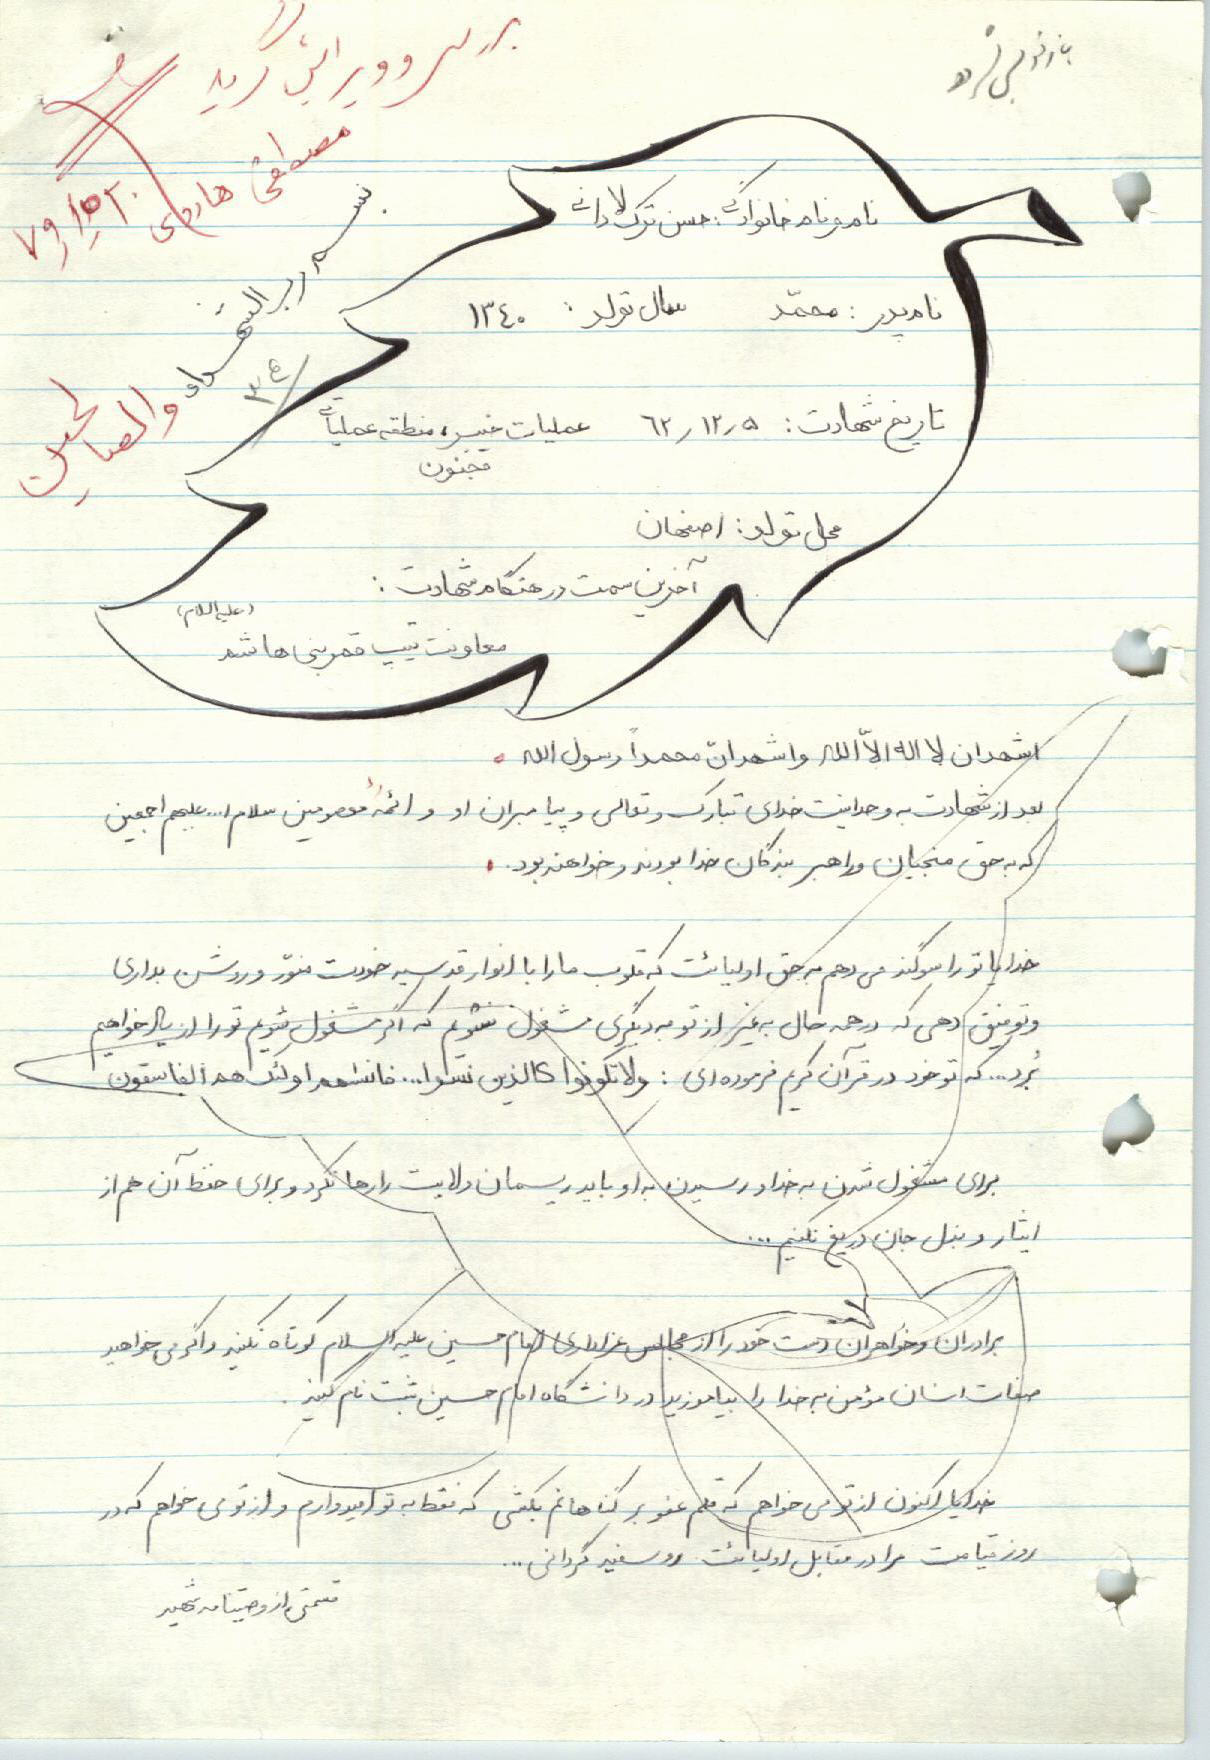 بازنویسی شود
بررسی و ویرایش گردید
مصطفی هادوی
۷۹/۱۵/۲۰
بسم رب الشهداء والصالحین
۳۴۵
نام و نام خانوادگی: حسن ترک لادانی
نام پدر: محمّد سال تولد: ۱۳۴۰
تاریخ شهادت: ۶۲/۱۲/۵ عملیات خیبر، منطقه عملیاتی
مجنون
محل تولد: اصفهان
آخرین سمت در هنگام شهادت:
معاونت تیپ قمر بنی هاشم (علیه السلام)
اشهد ان لا اله الاّ الله و اشهد انّ محمداً رسول الله.
بعد از شهادت به وحدانیت خدای تبارک و تعالی و پیامبران او و ائمهٔ معصومین سلام ا... علیهم اجمعین
که به حق منجیان و راهبر بندگان خدا بودند و خواهند بود.
خدایا تو را سوگند می دهم به حق اولیائت که قلوب ما را با انوار قدسیه خودت منوّر و روشن بداری
و توفیق دهی که در همه حال به غیر از تو به دیگری مشغول نشویم که اگر مشغول شویم تو را از یاد خواهیم
بُرد... که تو خود در قرآن کریم فرموده ای: ولا تکونوا کالذین نسوا... فانسهم اولئک هم الفاسقون
برای مشغول شدن به خدا و رسیدن به او باید ریسمان ولایت را رها نکرد و برای حفظ آن هم از
ایثار و بذل جان دریغ نکنیم...
برادران و خواهران دست خود را از مجالس عزاداری امام حسین علیه السلام کوتاه نکنید و اگر می خواهید
صفات انسان مؤمن به خدا را بیاموزید در دانشگاه امام حسین ثبت نام کنید.
خدایا اکنون از تو می خواهم که قلم عفو بر گناهانم بکشی که فقط به تو امیدوارم و از تو می خواهم که در
روز قیامت مرا در مقابل اولیائت رو سفید گردانی...
قسمتی از وصیتنامه شهید